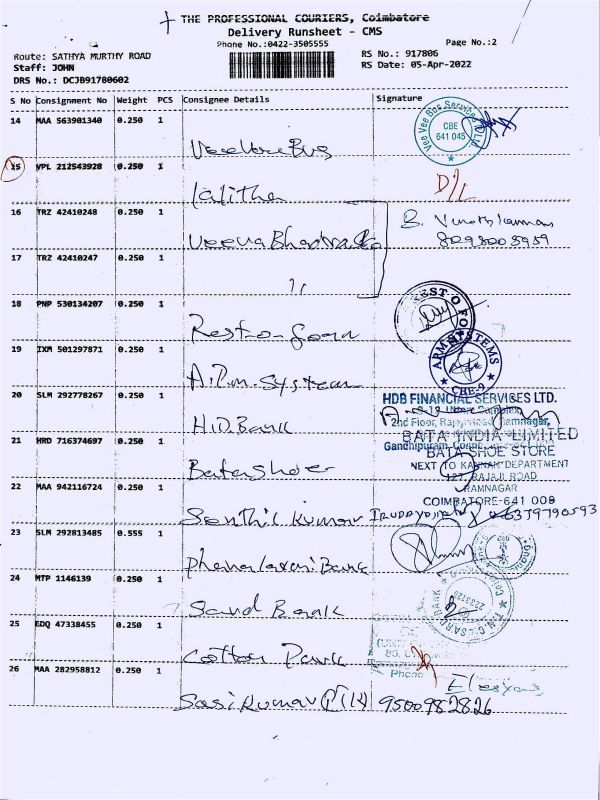 THE PROFESSIONAL COURIERS, Coimbatore
Delivery Runsheet - CMS
Phone No.:0422-3505555
Page No.:2
Route: SATHYA MURTHY ROAD
RS No.: 917806
Staff: JOHN
RS Date: 05-Apr-2022
DRS No.: DCJB91780602
S No Consignment No Weight PCS Consignee Details Signature
14 MAA 563901340 0.250 1
Vee Vee Bus
Vee Vee Bus Services CBE 641 045
15 VPL 212543928 0.250 1
Lalitha D/L
16 TRZ 42410248 0.250 1
Veena Bhadra
17 TRZ 42410247 0.250 1
18 PNP 530134207 0.250 1
Rest-o-foam
REST O FO
19 IXM 501297871 0.250 1
A.P.M. System
ARM SYSTEMS CBE-9
20 SLM 292778267 0.250 1
H.D. Bank
HDB FINANCIAL SERVICES LTD.
2nd Floor,
Gandhipuram,
21 HRD 716374697 0.250 1
Bata Shoe
BATA INDIA LIMITED
BATA SHOE STORE
NEXT TO KANNAN DEPARTMENT
127, RAJAJI ROAD
RAMNAGAR
COIMBATORE-641 009
22 MAA 942116724 0.250 1
Senthil Kumar 6379790593
23 SLM 292813485 0.555 1
Dhanalaxmi Bank
24 MTP 1146139 0.250 1
Sard Bank
25 EDQ 47338455 0.250 1
Cotton Park
Phone
26 MAA 282958812 0.250 1
Sasi Kumar 9500982826